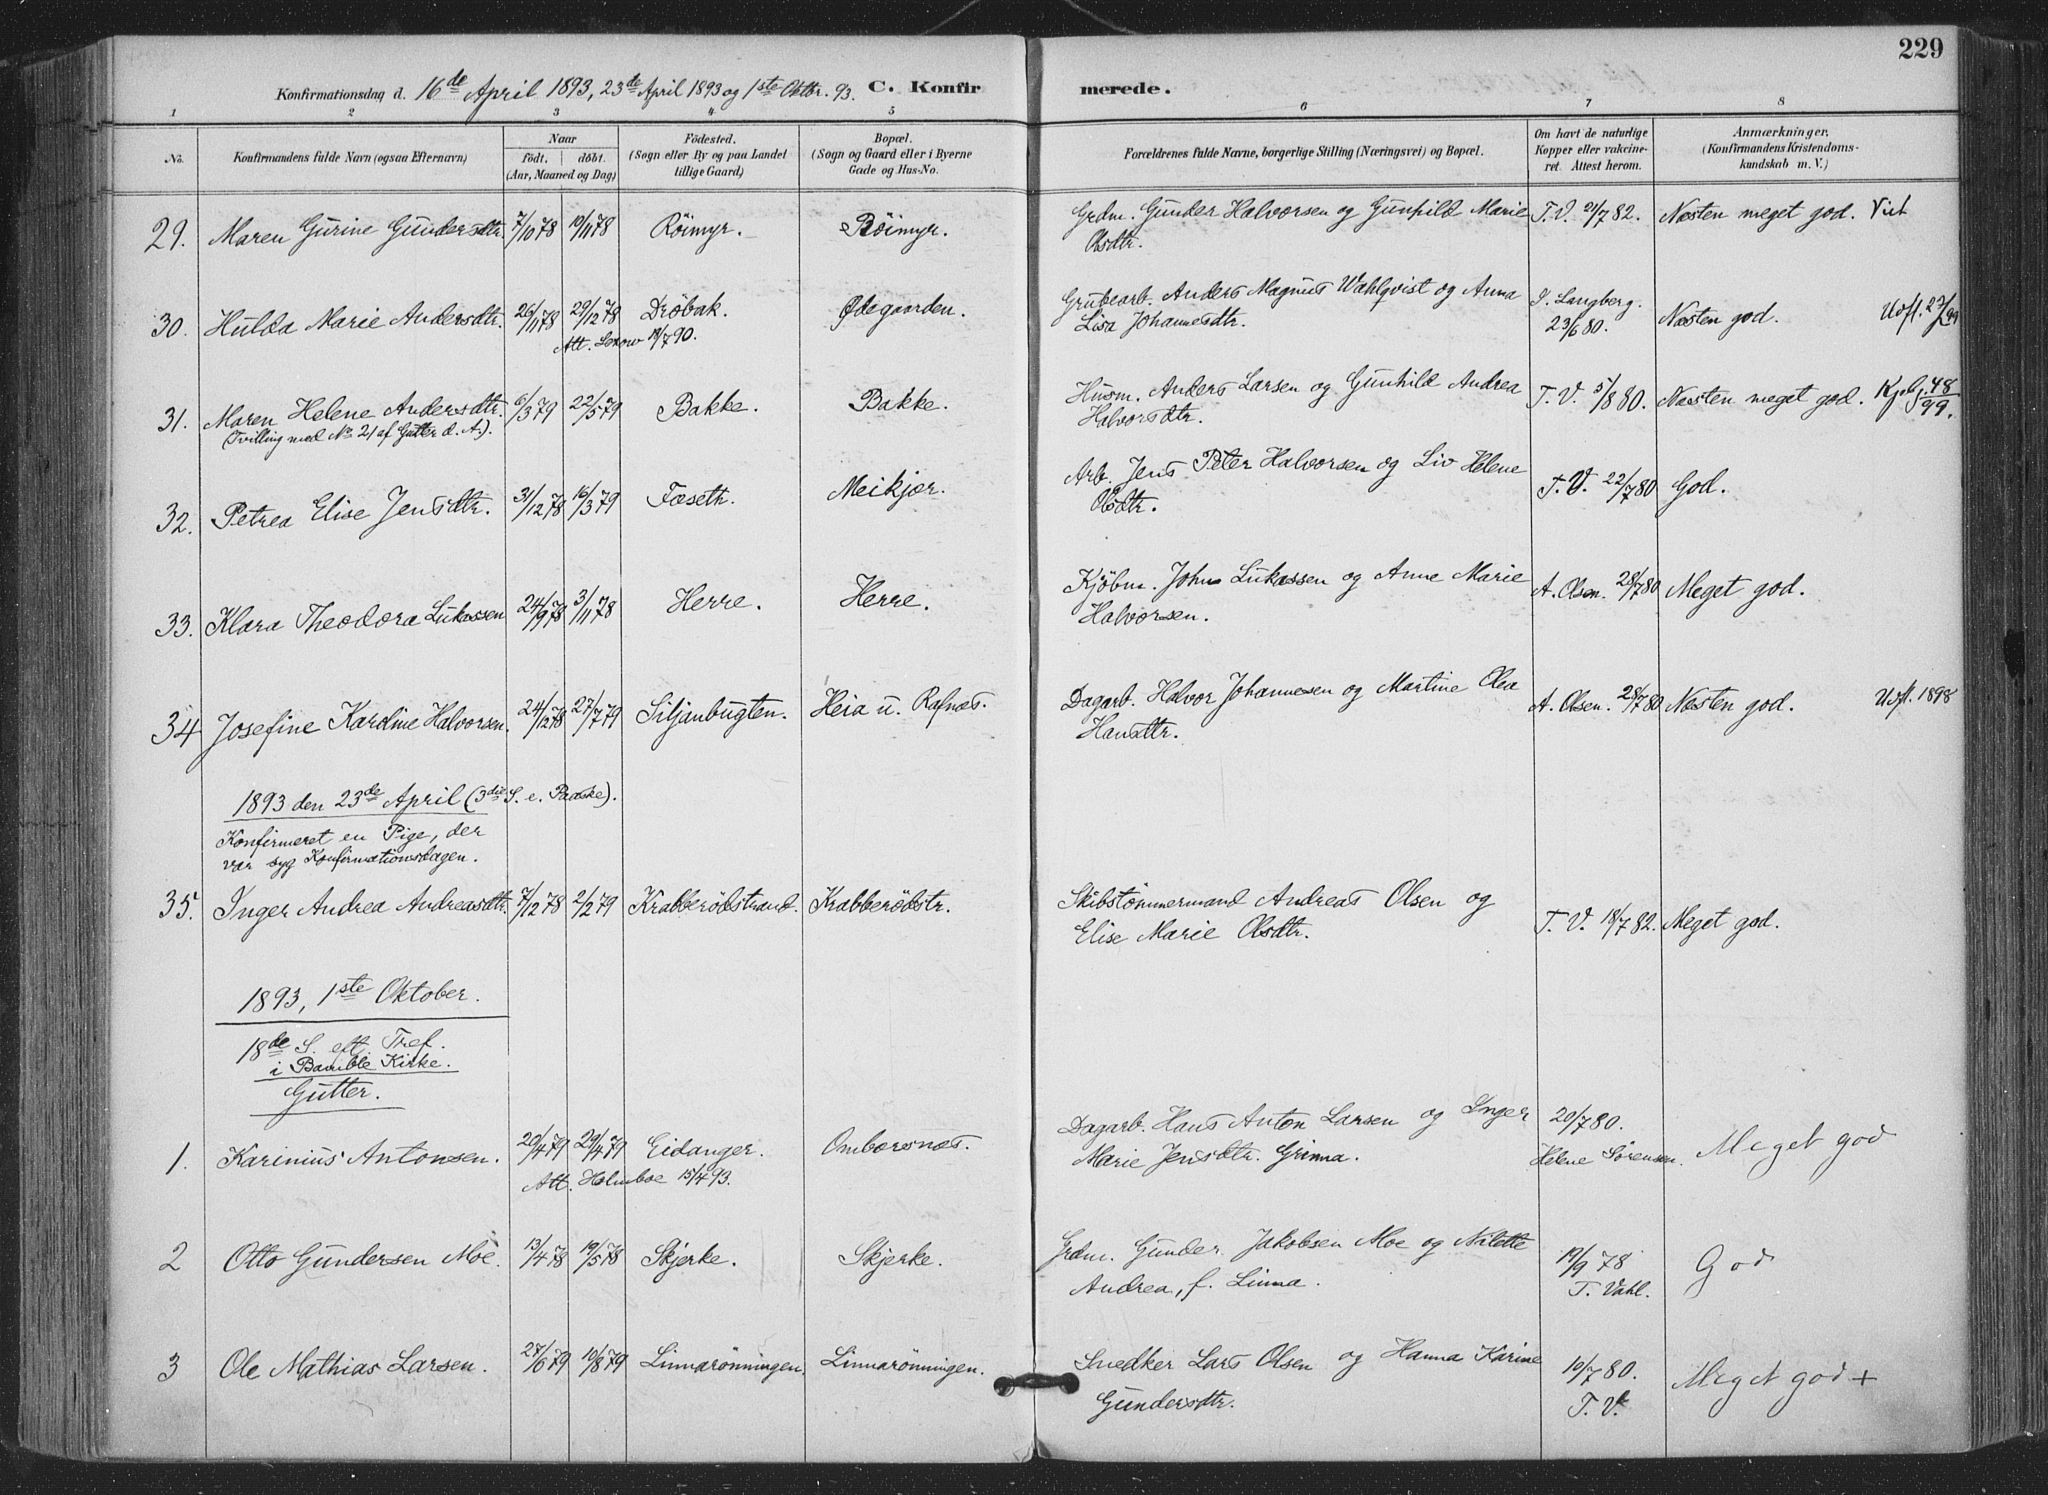 229
Konfirmationsdag d. 16de April 1893, 23de April 1893 og 1ste Oktbr. 93. C. Konfirmerede.
1 2 3 4 5 6 7 8
No. Konfirmandens fulde Navn (ogsaa Efternavn) Naar födt. döbt. (Aar, Maaned og Dag) Födested. (Sogn eller By og paa Landet tillige Gaard) Bopæl. (Sogn og Gaard eller i Byerne Gade og Hus-No. Forældrenes fulde Navne, borgerlige Stilling (Næringsvei) og Bopæl. Om havt de naturlige Kopper eller vakcineret. Attest herom. Anmærkninger. (Konfirmandens Kristendomskundskab m. V.)
29. Maren Gurine Gundersdtr. 7/10 78 10/11 78 Röimyr. Röimyr. Grdm. Gunder Halvorsen og Gunhild Marie T. V. 21/7 82. Næsten meget god.
Olsdtr.
30. Hulda Marie Andersdtr. 26/11 78 29/12 78 Dröbak. Ødegaarden. Grubearb. Anders Magnus Wahlqvist og Anna J. Langberg. Næsten god.
Att. Lexow 19/7 90. Lisa Johannesdtr. 23/6 80.
31. Maren Helene Andersdtr. 6/3 79 22/5 79 Bakke. Bakke. Husm. Anders Larsen og Gunhild Andrea T. V. 5/8 80. Næsten meget god. Kjøbg. 48/99.
(Tvilling med No 21 af Gutter d. A.). Halvorsdtr.
32. Petrea Elise Jensdtr. 31/12 78 16/3 79 Fæseth. Meikjær. Arb. Jens Peter Halvorsen og Liv Helene T. V. 22/7 80 God.
Olsdtr.
33. Klara Theodora Lukassen 24/9 78 3/11 78 Herre. Herre. Kjöbm. John Lukassen og Anne Marie A. Olsen. 28/7 80 Meget god.
Halvorsen.
34 Josefine Kardine Halvorsen. 24/12 78 27/7 79 Siljanbugten. Heia u. Rafnæs. Dagarb. Halvor Johannesen og Martine Olea A. Olsen. 28/7 80 Næsten god. Udfl. 1898
Hansdtr.
1893 den 23de April (3die S. e. Paaske).
Konfirmeret en Pige, der
var syg Konfirmationsdagen.
35. Inger Andrea Andreasdtr. 7/12 78 2/2 79 Krabberödstrand. Krabberödstr. Skibstömmermand Andreas Olsen og T. V. 18/7 82. Meget god.
Elise Marie Olsdtr.
1893, 1ste Oktober.
18de S. eft. Tref.
i Bamble Kirke.
Gutter.
1. Karinius Antonsen. 20/4 79 29/4 79 Eidanger. Ombørsnæs. Dagarb. Hans Anton Larsen og Inger 20/7 80. Meget god
Att. Holmboe 15/4 93. Marie Jensdtr. Grinna. Helene Sörensen.
2 Otto Gundersen Moe. 13/4 78 19/5 78 Skjerke. Skjerke. Grdm. Gunder Jakobsen Moe og Nilette 19/9 78 God
Andrea, f. Linna. T. Vahl.
3 Ole Mathias Larsen. 27/6 79 10/8 79 Linnarönningen. Linnarönningen. Snedker Lars Olsen og Hanna Karine 10/7 80. Meget god +
Gundersdtr. T. V.